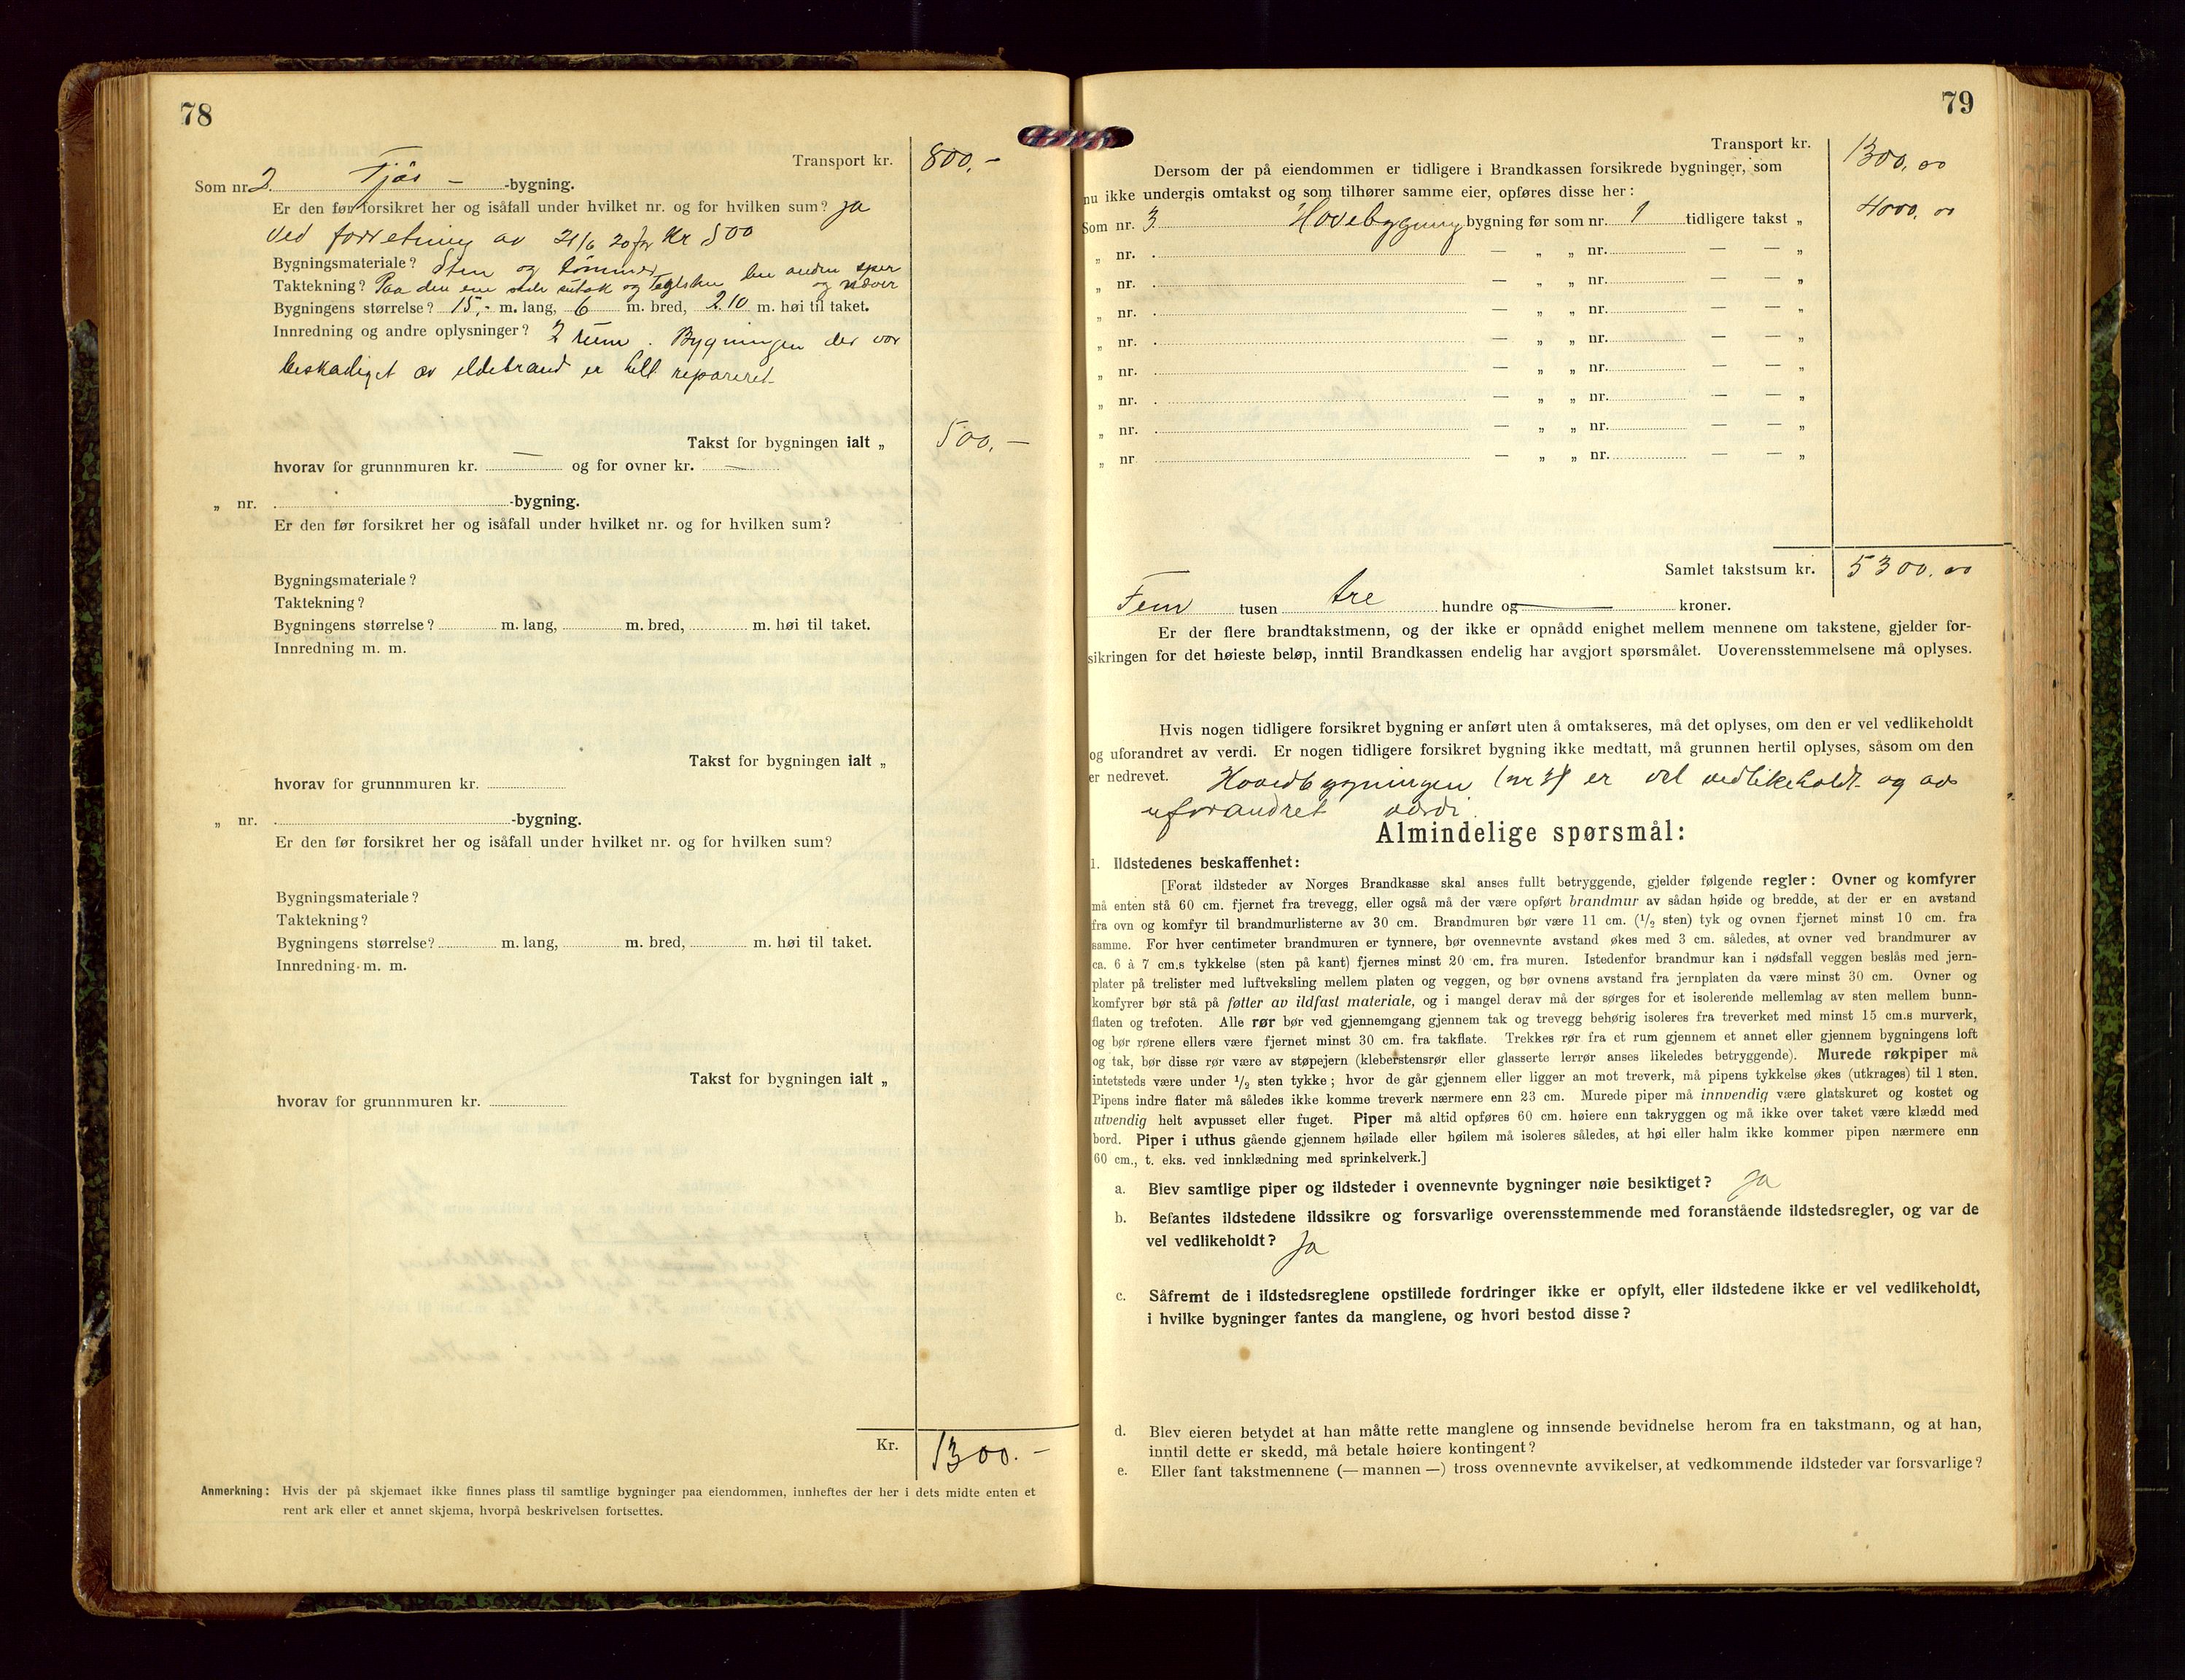 78
Transport kr. 800.-
Som nr. 2. Fjøs - -bygning.
Er den før forsikret her og isåfall under hvilket nr. og for hvilken sum? ja
Ved forretning av 21/6 20 for Kr 500
Bygningsmateriale? Sten og tømmer
Taktekning? Paa den ene side sutak og Taglsten den anden sper og næver
Bygningens størrelse? 15,- m. lang, 6 m. bred, 2.10 m. høi til taket.
Innredning og andre oplysninger? 2 rum. Bygningen der var
beskadiget av ildebrand er helt repareret-
Takst for bygningen ialt „ 500.-
hvorav for grunnmuren kr. — og for ovner kr. —
„ nr. -bygning.
Er den før forsikret her og isåfall under hvilket nr. og for hvilken sum?
Bygningsmateriale?
Taktekning?
Bygningens størrelse? m. lang, m. bred, m. høi til taket.
Innredning m. m.
Takst for bygningen ialt „
hvorav for grunnmuren kr.
„ nr. -bygning.
Er den før forsikret her og isåfall under hvilket nr. og for hvilken sum?
Bygningsmateriale?
Taktekning?
Bygningens størrelse? m. lang, m. bred, m. høi til taket.
Innredning m. m.
Takst for bygningen ialt „
hvorav for grunnmuren kr.
Kr. 1300.-
Anmerkning: Hvis der på skjemaet ikke finnes plass til samtlige bygninger paa eiendommen, innheftes der her i dets midte enten et
rent ark eller et annet skjema, hvorpå beskrivelsen fortsettes.
79
Transport kr. 1300.00
Dersom der på eiendommen er tidligere i Brandkassen forsikrede bygninger, som
nu ikke undergis omtakst og som tilhører samme eier, opføres disse her:
Som nr. 3 Hovebygning bygning før som nr. 1 tidligere takst „ 4000.00
„ nr. — „ „ nr. — — „
„ nr. — „ „ nr. — — „
„ nr. — „ „ nr. — — „
„ nr. — „ „ nr. — — „
„ nr. — „ „ nr. — — „
„ nr. — „ „ nr. — — „
„ nr. — „ „ nr. — — „
„ nr. — „ „ nr. — — „
Samlet takstsum kr. 5300.00
Fem tusen tre hundre og — kroner.
Er der flere brandtakstmenn, og der ikke er opnådd enighet mellem mennene om takstene, gjelder for-
sikringen for det høieste beløp, inntil Brandkassen endelig har avgjort spørsmålet. Uoverensstemmelsene må oplyses.
Hvis nogen tidligere forsikret bygning er anført uten å omtakseres, må det oplyses, om den er vel vedlikeholdt
og uforandret av verdi. Er nogen tidligere forsikret bygning ikke medtatt, må grunnen hertil oplyses, såsom om den
er nedrevet. Hovedbygningen (nr 3) er vel vedlikeholdt og av
uforandret verdi.
Almindelige spørsmål:
1. Ildstedenes beskaffenhet:
[Forat ildsteder av Norges Brandkasse skal anses fullt betryggende, gjelder følgende regler: Ovner og komfyrer
må enten stå 60 cm. fjernet fra trevegg, eller også må der være opført brandmur av sådan høide og bredde, at der er en avstand
fra ovn og komfyr til brandmurlisterne av 30 cm. Brandmuren bør være 11 cm. (1/2 sten) tyk og ovnen fjernet minst 10 cm. fra
samme. For hver centimeter brandmuren er tynnere, bør ovennevnte avstand økes med 3 cm. således, at ovner ved brandmurer av
ca. 6 à 7 cm.s tykkelse (sten på kant) fjernes minst 20 cm. fra muren. Istedenfor brandmur kan i nødsfall veggen beslås med jern-
plater på trelister med luftveksling mellem platen og veggen, og bør ovnens avstand fra jernplaten da være minst 30 cm. Ovner og
komfyrer bør stå på føtter av ildfast materiale, og i mangel derav må der sørges for et isolerende mellemlag av sten mellem bunn-
flaten og trefoten. Alle rør bør ved gjennemgang gjennem tak og trevegg behørig isoleres fra treverket med minst 15 cm.s murverk,
og bør rørene ellers være fjernet minst 30 cm. fra takflate. Trekkes rør fra et rum gjennem et annet eller gjennem bygningens loft
og tak, bør disse rør være av støpejern (kleberstensrør eller glasserte lerrør anses likeledes betryggende). Murede røkpiper må
intetsteds være under 1/2 sten tykke; hvor de går gjennem eller ligger an mot treverk, må pipens tykkelse økes (utkrages) til 1 sten.
Pipens indre flater må således ikke komme treverk nærmere enn 23 cm. Murede piper må innvendig være glatskuret og kostet og
utvendig helt avpusset eller fuget. Piper må altid opføres 60 cm. høiere enn takryggen og må ikke over taket være klædd med
bord. Piper i uthus gående gjennem høilade eller høilem må isoleres således, at høi eller halm ikke kommer pipen nærmere enn
60 cm., t. eks. ved innklædning med sprinkelverk.]
a. Blev samtlige piper og ildsteder i ovennevnte bygninger nøie besiktiget? ja
b. Befantes ildstedene ildssikre og forsvarlige overensstemmende med foranstående ildstedsregler, og var de
vel vedlikeholdt? Ja
c. Såfremt de i ildstedsreglene opstillede fordringer ikke er opfylt, eller ildstedene ikke er vel vedlikeholdt,
i hvilke bygninger fantes da manglene, og hvori bestod disse?
d. Blev eieren betydet at han måtte rette manglene og innsende bevidnelse herom fra en takstmann, og at han,
inntil dette er skedd, må betale høiere kontingent?
e. Eller fant takstmennene (— mannen —) tross ovennevnte avvikelser, at vedkommende ildsteder var forsvarlige?